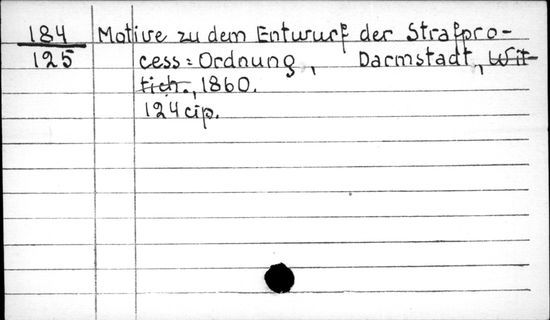 184 Motive zu dem Entwurf der Strafpro-
125 cess=Ordnung, Darmstadt, Wit-
tich., 1860.
124 cip.